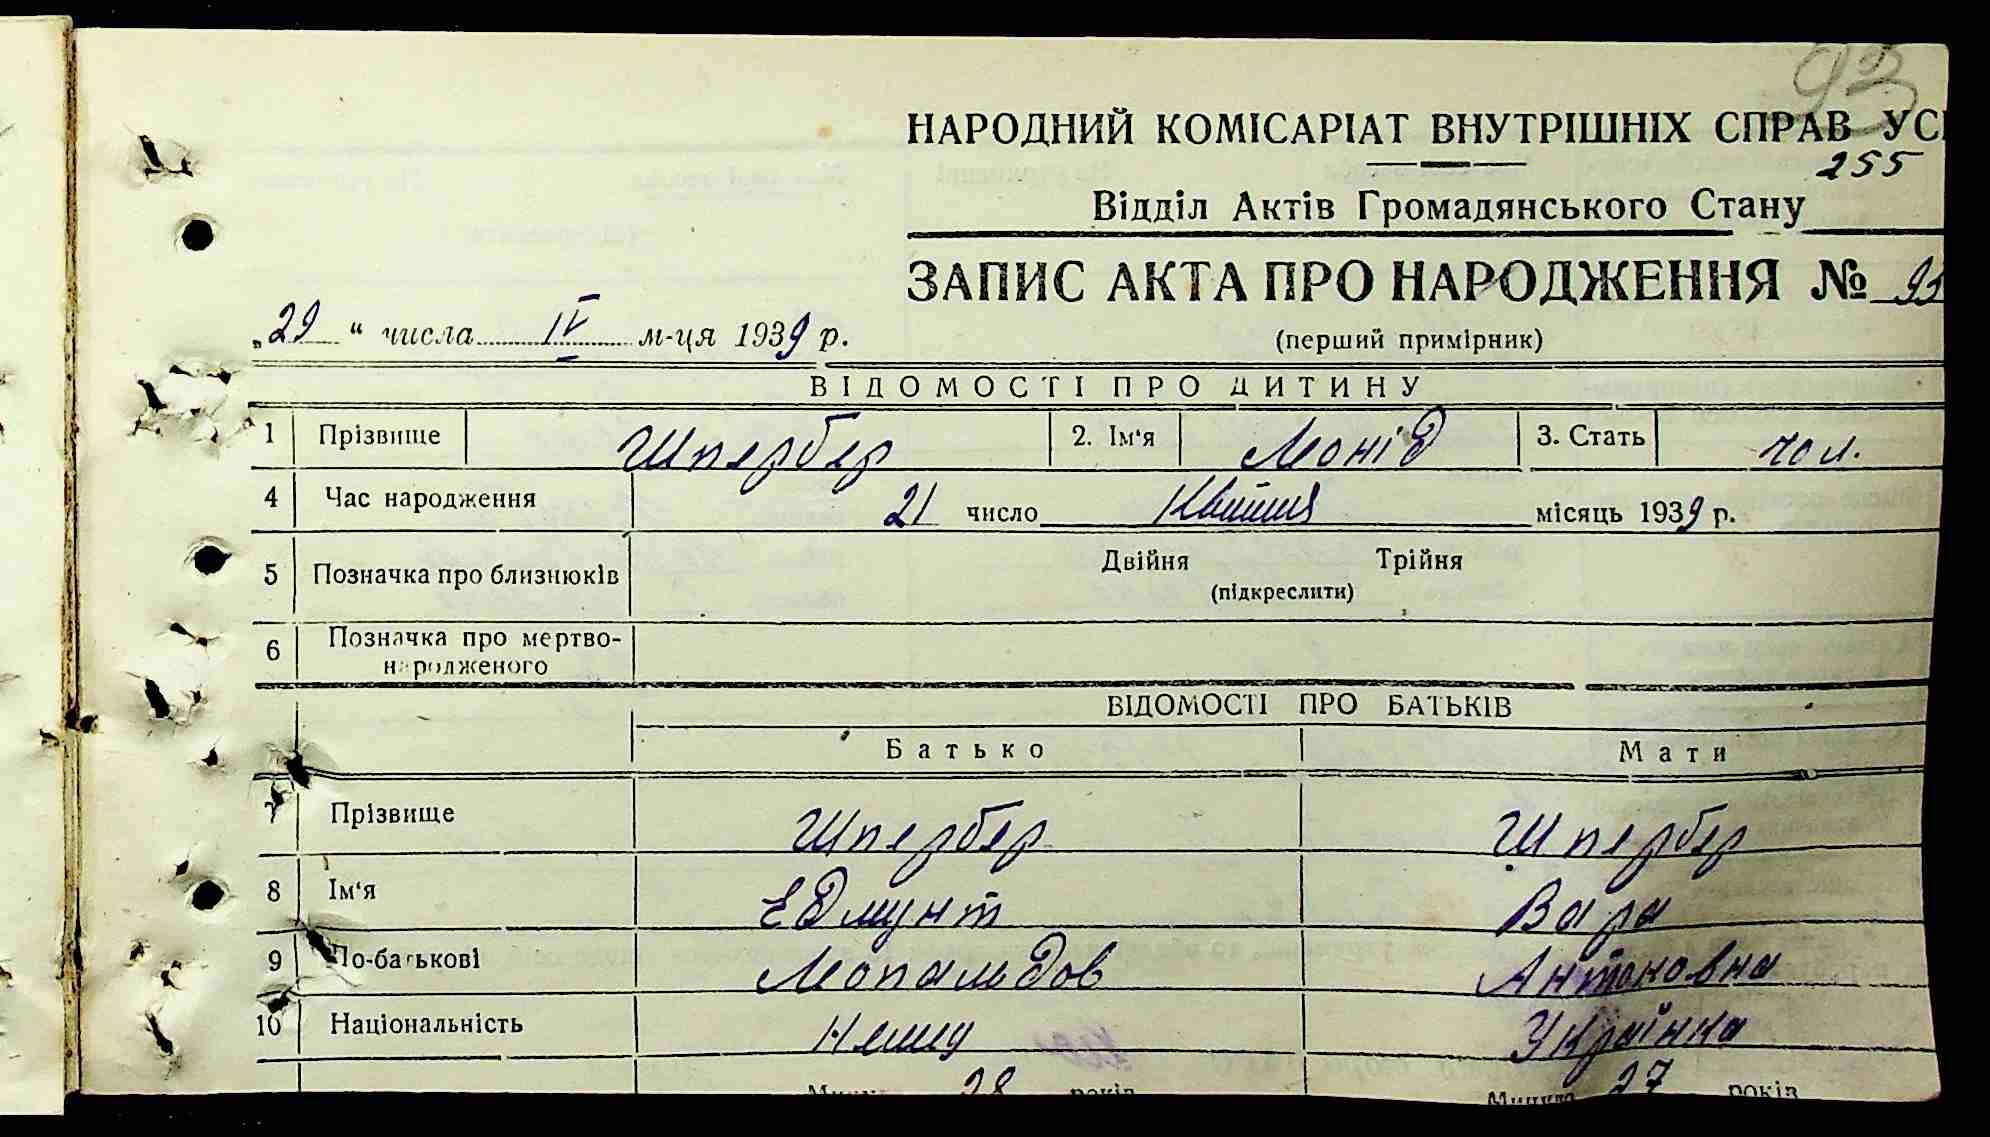 93
НАРОДНИЙ КОМІСАРІАТ ВНУТРІШНІХ СПРАВ УС
255
Відділ Актів Громадянського Стану
ЗАПИС АКТА ПРО НАРОДЖЕННЯ № 93
„29“ числа IV м-ця 1939 р.
(перший примірник)
ВІДОМОСТІ ПРО ДИТИНУ
1 Прізвище Шпербер 2. Ім'я Леонід 3. Стать чол.
4 Час народження 21 число Квітня місяць 1939 р.
5 Позначка про близнюків Двійня Трійня
(підкреслити)
6 Позначка про мертво-
народженого
ВІДОМОСТІ ПРО БАТЬКІВ
Батько Мати
7 Прізвище Шпербер Шпербер
8 Ім'я Едмунт Вара
9 По-батькові Антоновна
10 Національність Немец Українка
28 років 27 років